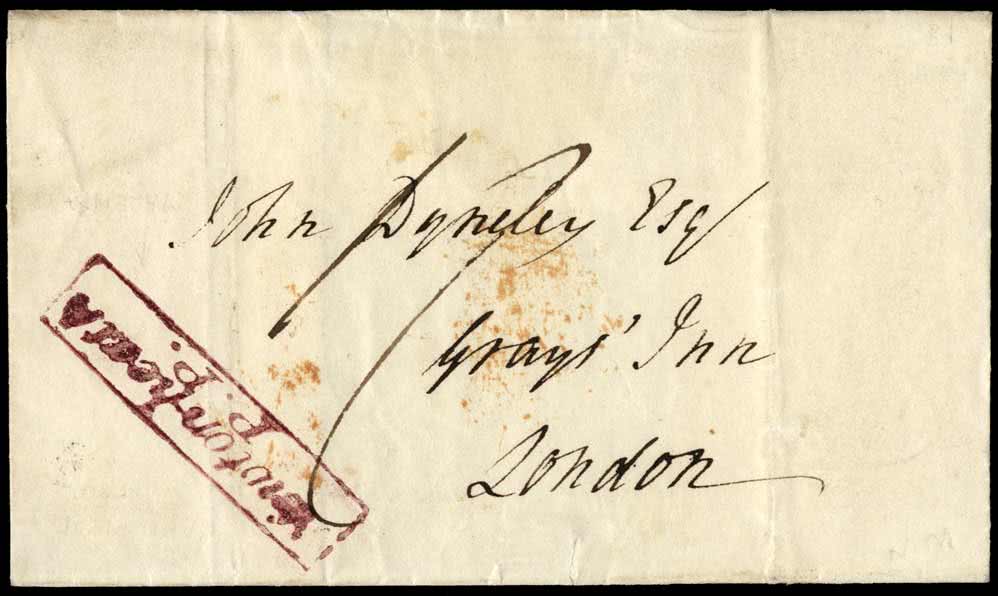 John Dyneley Esq
Grays' Inn
London